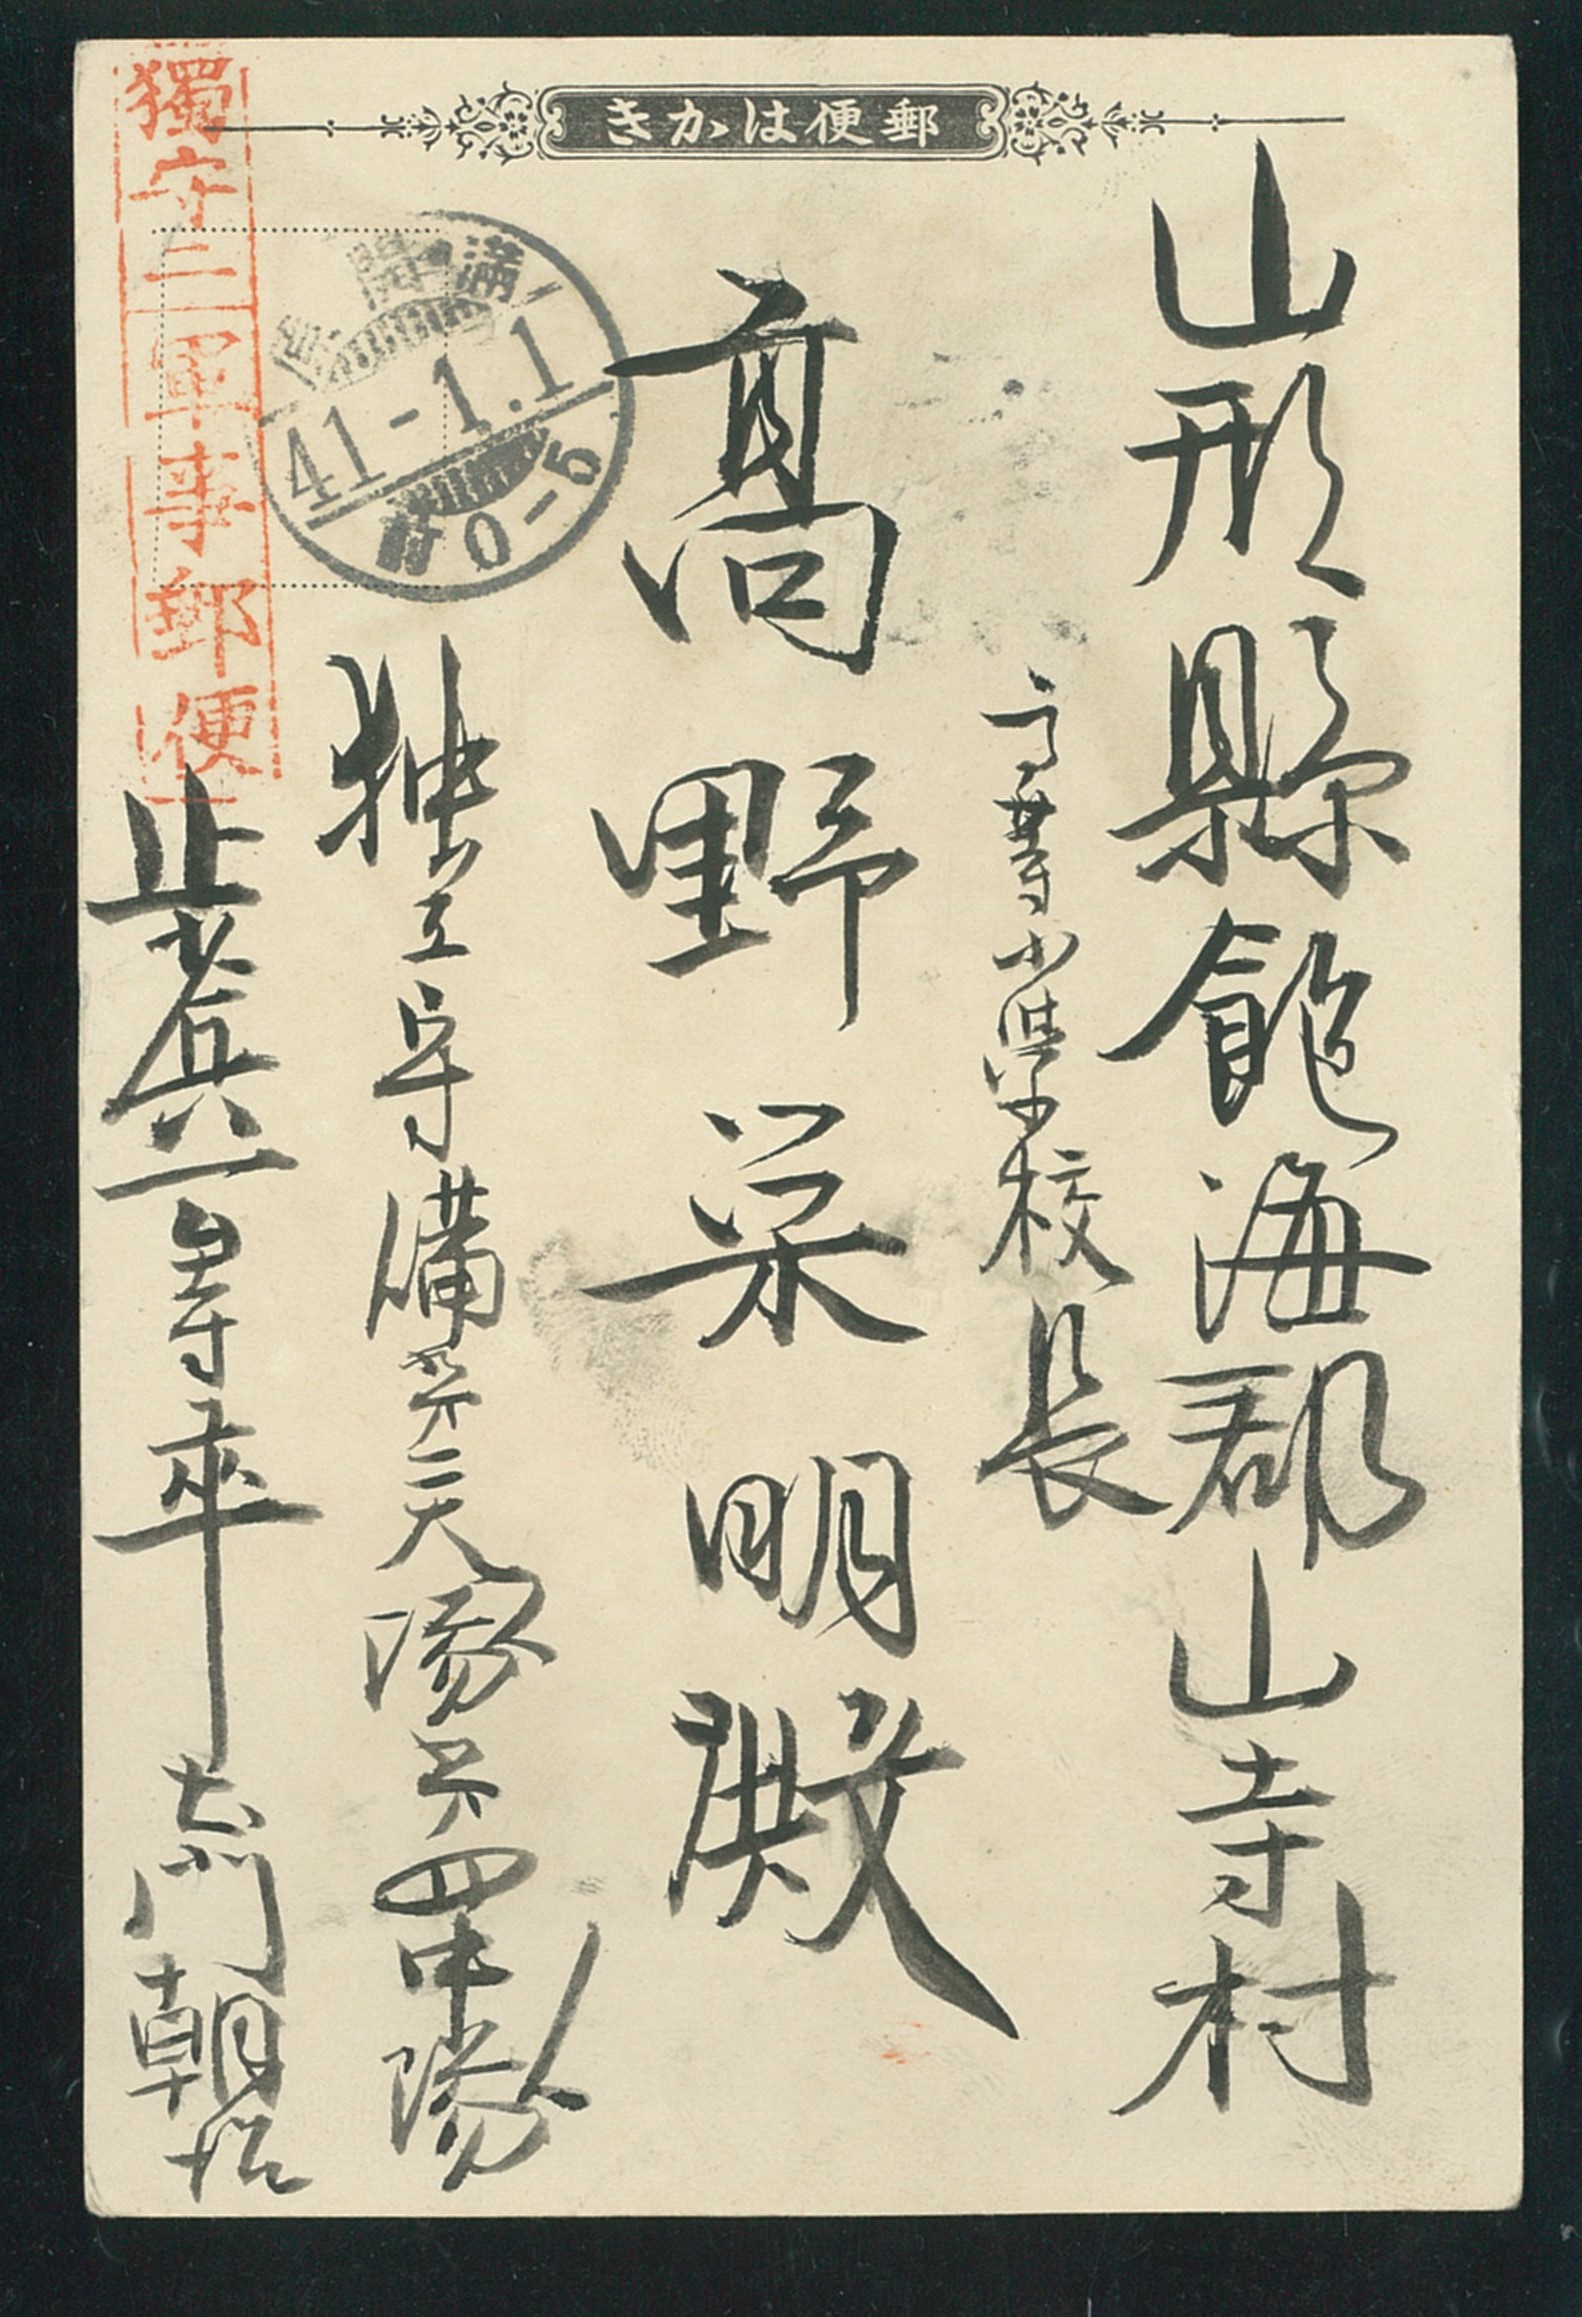 郵便はかき
山形縣飽海郡山寺村
高等小學校長
高野菜明殿
獨守二軍事郵便
満 開
41-1.1
0-5
独立守備第二大隊第四中隊
上等兵
朝治